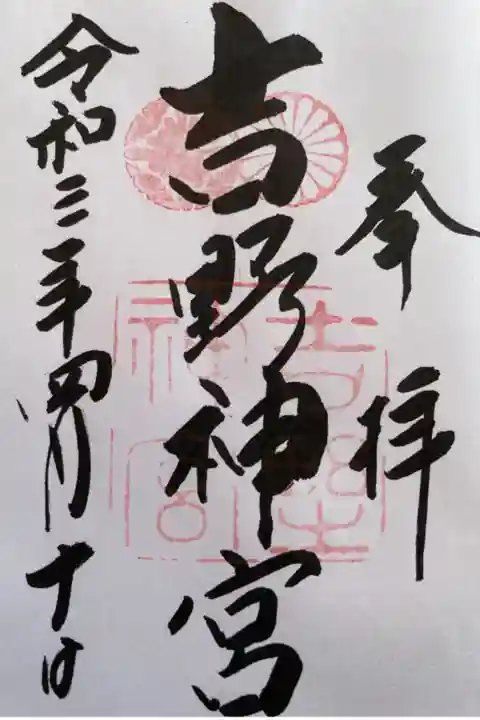 奉拝
吉野神宮
令和三年四月十日
吉野
神宮